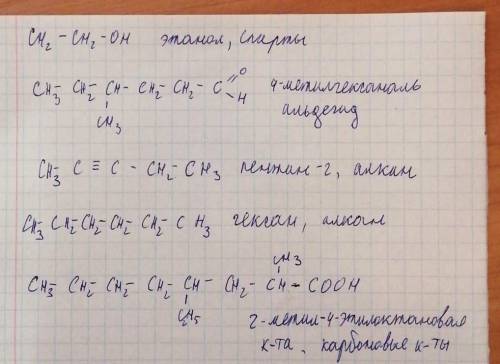 CH₂ - CH₂ - OH этанол, спирты
CH₃ - CH₂ - CH - CH₂ - CH₂ - C
=O
- H
CH₃
4-метилгексаналь
альдегид
CH₃ - C ≡ C - CH₂ - CH₃ пентин-2, алкин
CH₃ - CH₂ - CH₂ - CH₂ - CH₂ - CH₃ гексан, алкан
CH₃
CH₃ - CH₂ - CH₂ - CH₂ - CH - CH₂ - CH - COOH
C₂H₅
2-метил-4-этилоктановая
к-та, карбоновые к-ты